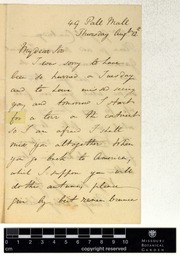 49 Pall Mall
Thursday Aug 12th
My dear Sir
I was sorry to have
been so hurried on Tuesday
and to have missed seeing
you, and tomorrow I start
for a tour on the continent
so I am afraid I shall
miss you altogether. When
you go back to America,
which I suppose you will
do this autumn, please
give my best remembrances
MISSOURI
BOTANICAL
GARDEN